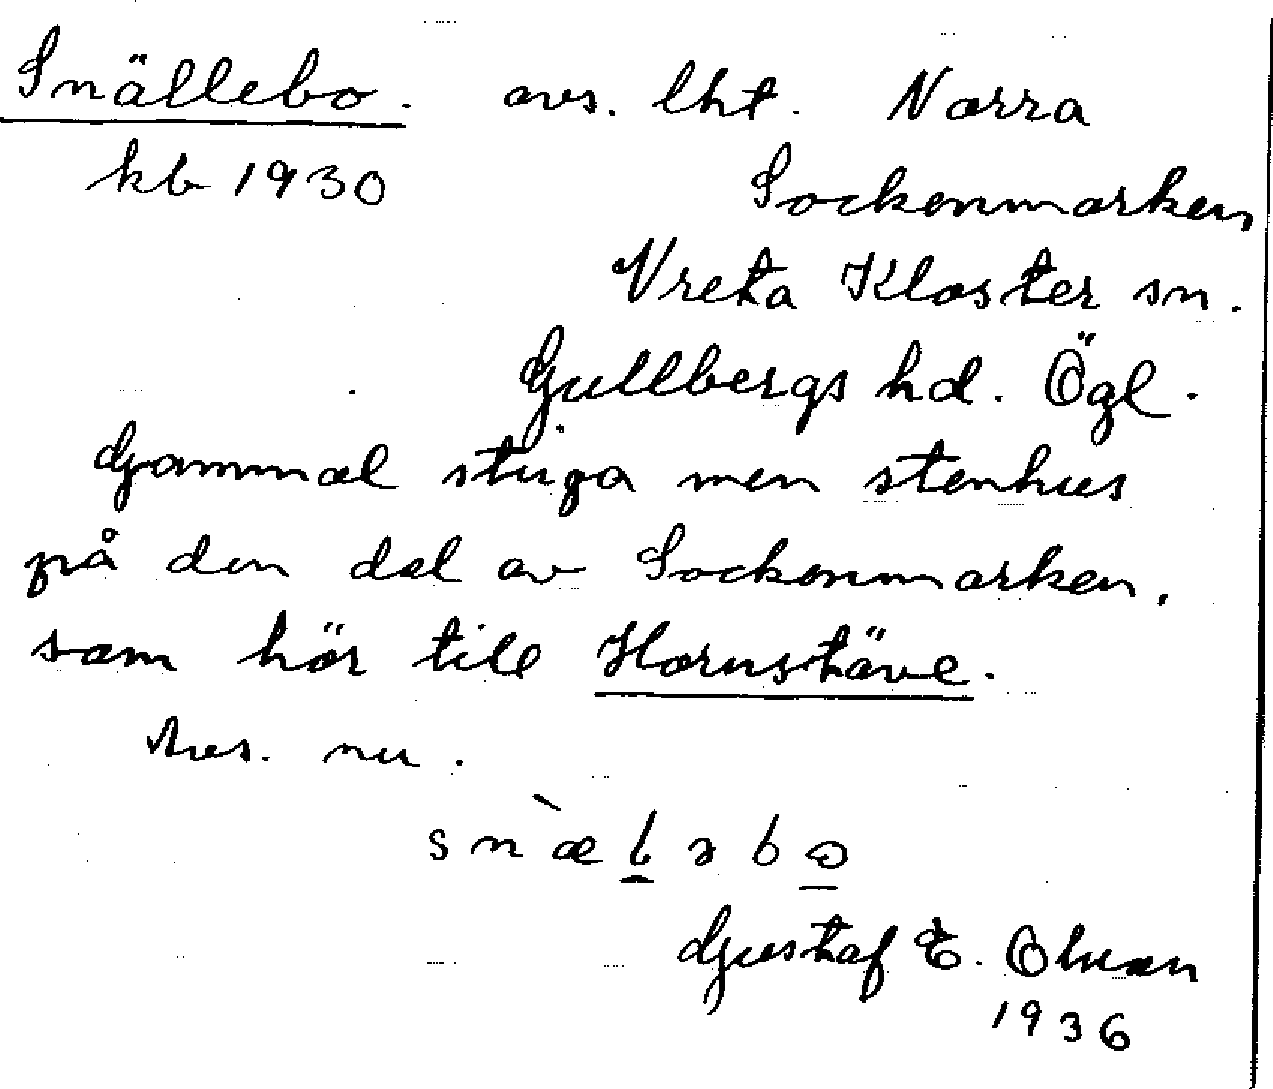 Snällebo. avs. lht. Norra
kb 1930 Sockenmarken
Vreta Kloster sn.
Gullbergs hd. Ögl.
Gammal stuga men stenhus
på den del av Sockenmarken,
som hör till Hornstäve.
hus. nu.
snæ̀lǝbo
Gustaf E. Olsson
1936